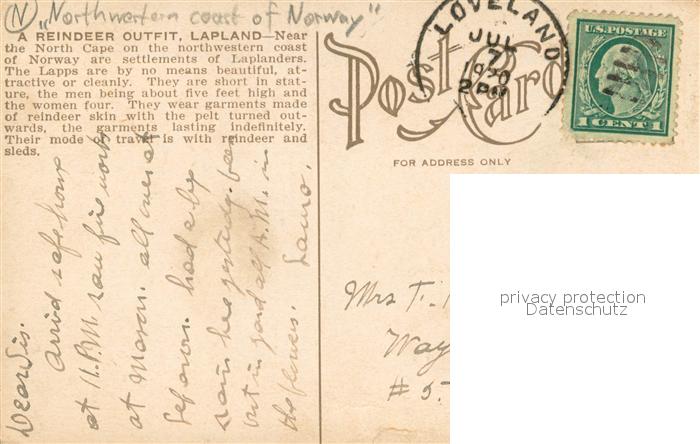 (N) „Northwestern coast of Norway"
A REINDEER OUTFIT, LAPLAND—Near
the North Cape on the northwestern coast
of Norway are settlements of Laplanders.
The Lapps are by no means beautiful, at-
tractive or cleanly. They are short in stat-
ure, the men being about five feet high and
the women four. They wear garments made
of reindeer skin with the pelt turned out-
wards, the garments lasting indefinitely.
Their mode of travel is with reindeer and
sleds.
Post Card
FOR ADDRESS ONLY
LOVELAND
JUL
7
1920
2 PM
U.S. POSTAGE
1 CENT 1
Dear Sis.
safe home
at 11. P.M. saw fire works
at all over at
had a big
rain here yesterday. been
out in yard all A.M. in
the
Laura.
Mrs F.
Way
# 5
privacy protection
Datenschutz